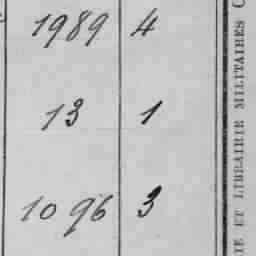 1989 4
13 1
1096 3
IE ET LIBRAIRIE MILITAIRES